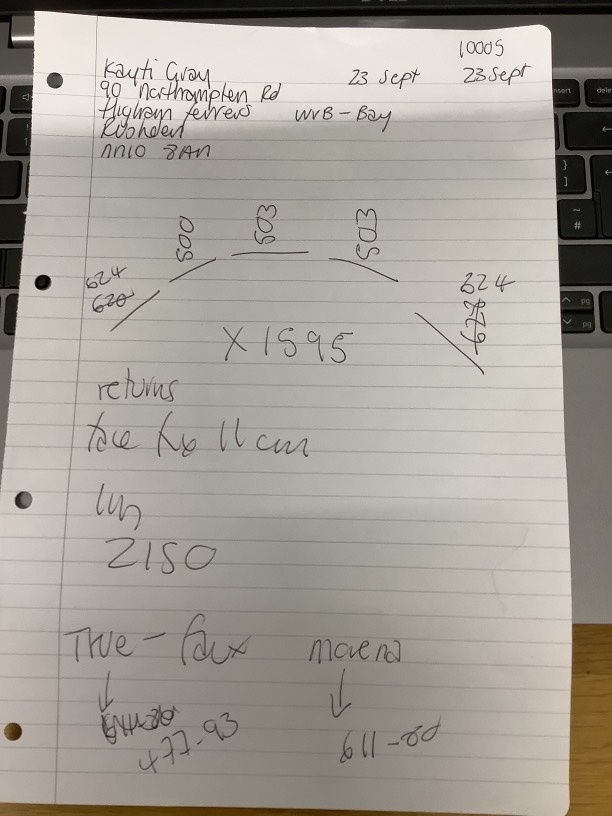 1000S
Kayti Gray 23 Sept 23 Sept
90 Northampton Rd
Higham ferrers WVB - Bay
Rushden
NN10 8AN
500 503 503
624 624
620
X 1595
returns
face fix 11 cm
2150
True - faux morena
477-93 611-8d